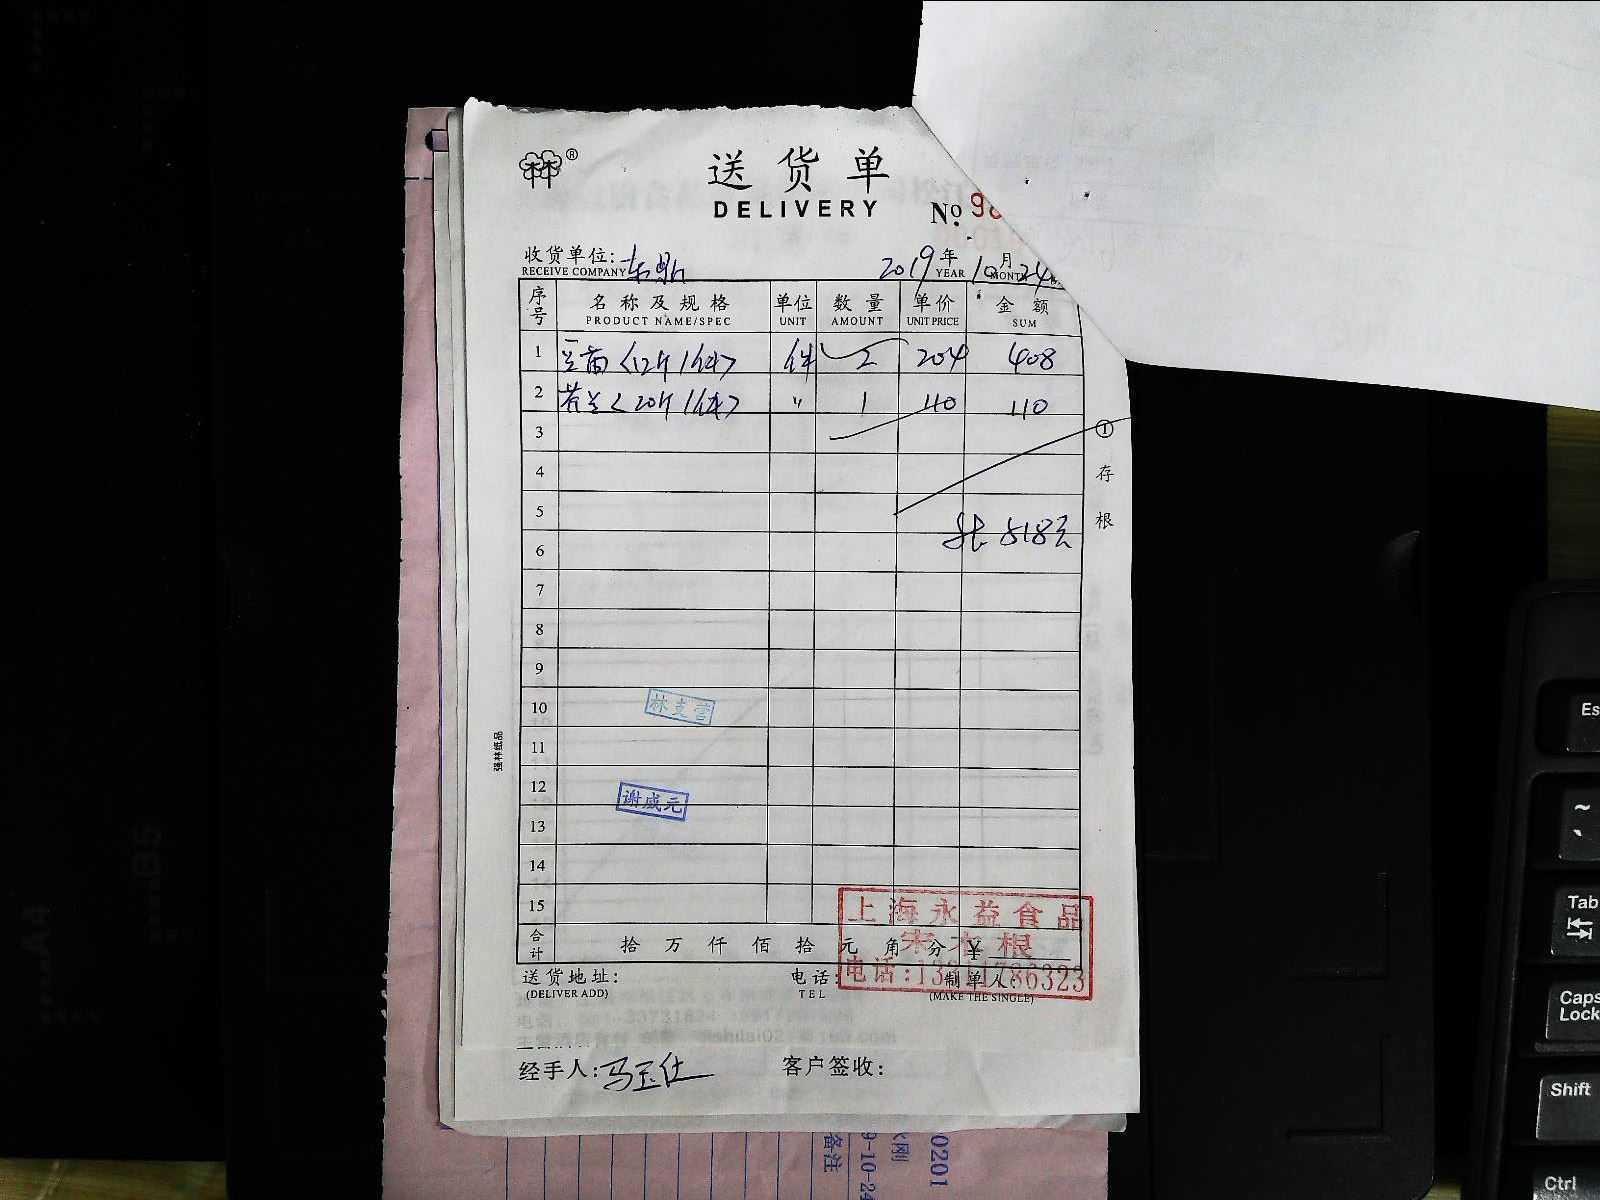 林林®
送货单
DELIVERY
№ 98
收货单位:
RECEIVE COMPANY
2019年 10月 24
YEAR MONTH
序号 名称及规格 单位 数量 单价 金额
PRODUCT NAME/SPEC UNIT AMOUNT UNIT PRICE SUM
1 豆苗〈12斤1件〉 件 2 204 408
2 〈20斤1件〉 〃 1 110 110
3
4
5
共 518元
6
7
8
9
10
林支营
11
12
谢威元
13
14
15
合计 拾万仟佰拾元角分¥
上海永益食品
宋木根
电话:
送货地址: 电话: 制单人:
(DELIVER ADD) TEL (MAKE THE SINGLE)
经手人:马玉仕 客户签收:
①存根
强林纸品
0201
9-10-24
备注
A4
B5
Es
~
Tab
Caps Lock
Shift
Ctrl